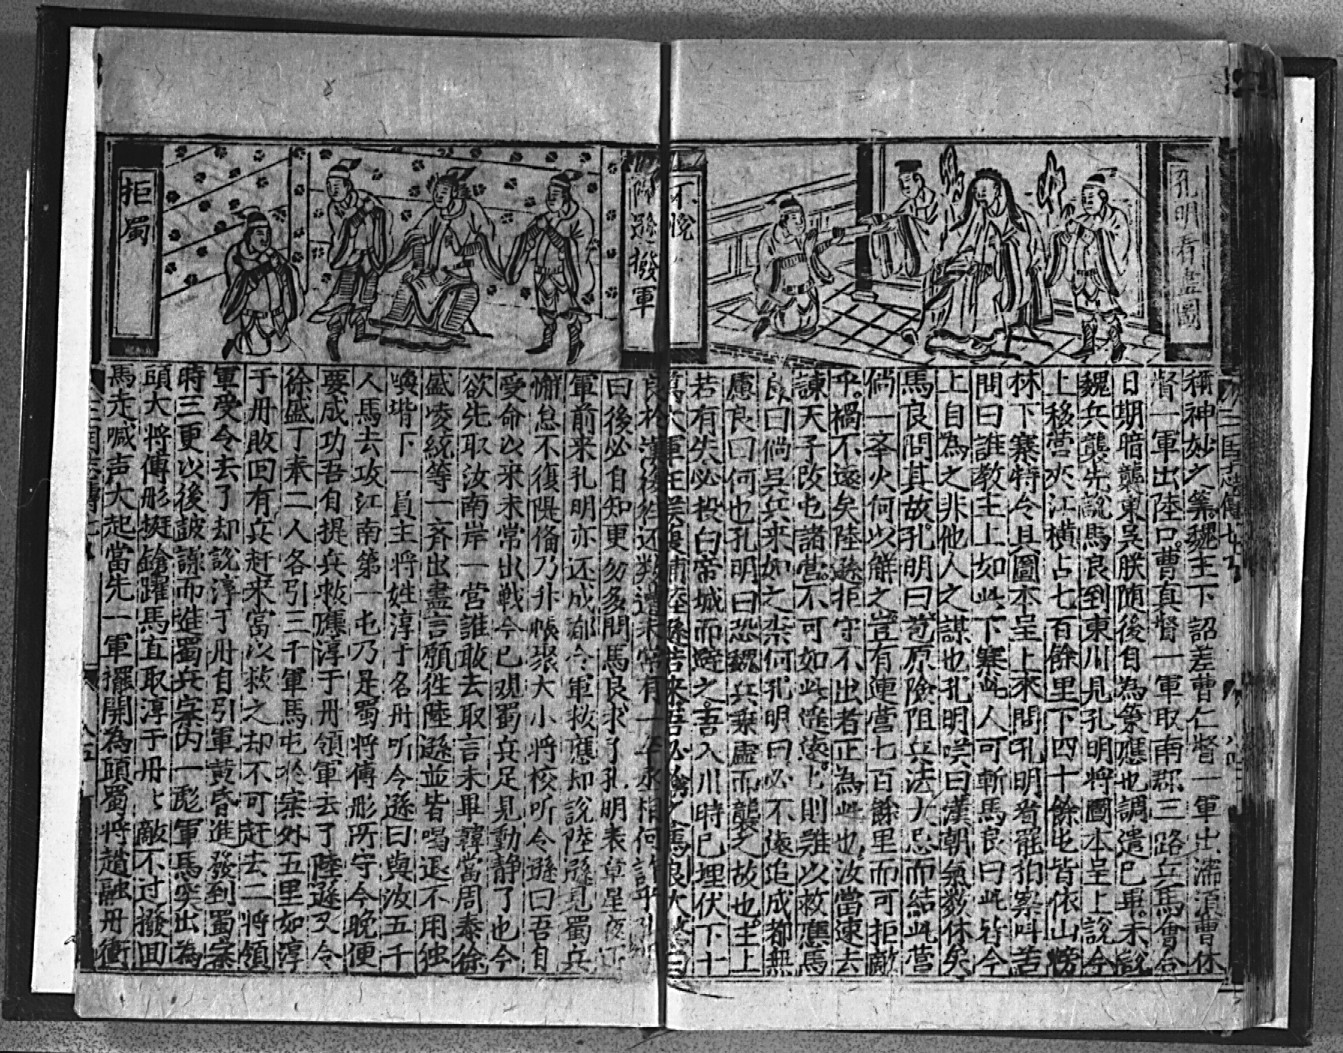 孔明看畫圖
不悅
稱神妙之筭魏主下詔差曹仁督一軍出濡須曹休
督一軍出陸口曹真督一軍取南郡三路兵馬會合
日期暗襲東吳朕随後自為策應也調遣已畢未說
魏兵襲先說馬良到東川見孔明將圖本呈上說今
上移営夾江橫占七百餘里下四十餘屯皆依山傍
林下寨特令具圖本呈上來問孔明看罷拍案叫苦
問曰誰教主上如此下寨此人可斬馬良曰此皆今
上自為之非他人之謀也孔明嘆曰漢朝氣数休矣
馬良問其故孔明曰苞原險阻兵法大忌而結此营
倘一举火何以觧之豈有連营七百餘里而可拒敵
乎禍不遠矣陸遜拒守不出者正為此也汝當速去
諌天子改屯諸营不可如此遠上則难以救應馬
良曰倘吳兵来如之柰何孔明曰必不遠追成都無
慮良曰何也孔明曰恐魏兵乘虚而襲之故也主上
若有失必投白帝城而避之吾入川時已埋伏下十
萬大軍在魚腹浦陸遜若来吾必擒之馬良大驚曰
陸遜撥軍
拒蜀
良於漢後往还数遭未常有一卒丞相何詐乎孔明
曰後必自知更勿多問馬良求了孔明表章星夜下
軍前来孔明亦还成都令軍救應却說陸遜見蜀兵
懈怠不復隄俻乃升帳聚大小將校听令遜曰吾自
受命以来未常出戦今已覌蜀兵足見動静了也今
欲先取汝南岸一营誰敢去取言未畢韓當周泰徐
盛凌統等一斉出盡言願往陸遜並皆喝退不用独
喚堦下一員主將姓淳于名丹听令遜曰與汝五千
人馬去攻江南第一屯乃是蜀將傅彤所守今晚便
要成功吾自提兵救應淳于丹領軍去了陸遜又令
徐盛丁奉二人各引三千軍馬屯於寨外五里如淳
于丹敗回有兵赶来當以救之却不可赶去二將領
軍受令去了却說淳于丹自引軍黄昏進發到蜀寨
時三更以後皷譟而進蜀兵寨内一彪軍馬突出為
頭大將傅彤挺鎗躍馬直取淳于丹丹敵不过撥回
馬走喊声大起當先一軍擺開為頭蜀將趙融丹衝